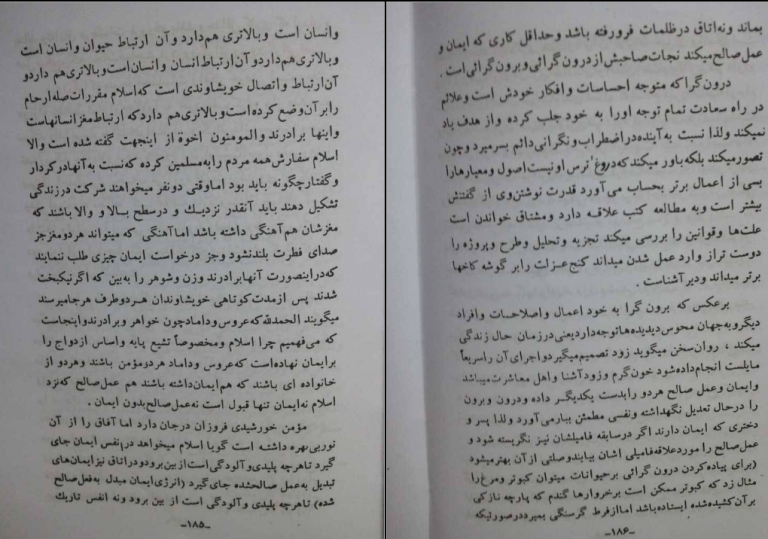 وانسان است وبالاتری هم‌دارد وآن ارتباط حیوان وانسان است
وبالاتری‌هم‌داردوآن‌ارتباط‌انسان وانسان‌است‌وبالاتری‌هم داردو
آن‌ارتباط واتصال خویشاوندی است که‌اسلام مقررات‌صله‌ارحام
رابرآن‌وضع کرده‌است‌وبالاتری‌هم داردکه ارتباط‌مغزانسانهاست
واینها برادرند والمومنون اخوة از اینجهت گفته شده است والا
اسلام سفارش‌همه مردم رابه‌مسلمین کرده که‌نسبت به‌آنهادرکردار
وگفتارچگونه باید بود اماوقتی دونفر میخواهند شرکت درزندگی
تشکیل دهند باید آنقدر نزدیک و درسطح بالا و والا باشند که
مغزشان هم‌آهنگی داشته باشد اماآهنگی که میتواند هردومغزجز
صدای فطرت بلندنشود وجز درخواست ایمان چیزی طلب ننمایند
که‌دراینصورت آنهابرادرند وزن وشوهر رابه‌بین که اگرنیکبخت
شدند پس ازمدت‌کوتاهی خویشاوندان هردوطرف هرجامیرسند
میگویند الحمدلله‌که‌عروس ودامادچون خواهر وبرادرندواینجاست
که می‌فهمیم چرا اسلام ومخصوصاً تشیع پایه واساس ازدواج را
برایمان نهاده‌است که‌عروس وداماد هردومؤمن باشند وهردو از
خانواده ای باشند که هم‌ایمان‌داشته باشند هم عمل‌صالح که‌نزد
اسلام نه‌ایمان تنها قبول است نه‌عمل‌صالح‌بدون ایمان .
مؤمن خورشیدی فروزان درجان دارد اماآفاق را از آن
نوربی‌بهره داشته است گویا اسلام میخواهد درنفس ایمان جای
گیرد تاهرچه پلیدی‌وآلودگی‌است‌ازبین‌برودودراتاق نیزایمان‌های
تبدیل به‌عمل صالحشده جای‌گیرد (انرژی‌ایمان مبدل به‌فعل‌صالح
شده) تاهرچه پلیدی وآلودگی است از بین برود ونه انفس تاریک
-۱۸۵-
بماند ونه‌اتاق درظلمات فرورفته باشد وحداقل کاری که ایمان و
عمل‌صالح‌میکند نجات‌صاحبش ازدرون‌گرائی‌وبرون‌گرائی‌است.
درون‌گراکه متوجه احساسات وافکار خودش است‌وعلائم
در راه سعادت تمام توجه اورا به خود جلب کرده واز هدف یاد
نمیکند ولذا نسبت به‌آینده‌دراضطراب‌ونگرانی‌دائم بسرمیبرد وچون
تصورمیکند بلکه‌باور میکندکه‌دروغ ترس اونیست‌اصول ومعیارهارا
بسی از اعمال برتر بحساب می‌آورد قدرت نوشتن‌وی از گفتنش
بیشتر است وبه مطالعه کتب علاقه دارد ومشتاق خواندن است
علت‌ها وقوانین را بررسی میکند تجزیه وتحلیل وطرح وپروژه را
دوست تراز وارد عمل شدن میداند کنج‌عزلت رابر گوشه کاخها
برتر میداند ودیرآشناست .
برعکس که برون گرا به خود اعمال واصلاحات وافراد
دیگروبه‌جهان محوس‌دیدیده‌هاتوجه‌داردیعنی‌درزمان حال زندگی
میکند ، روان‌سخن میگوید زود تصمیم‌میگیردواجرای آن راسریعاً
مایلست انجام‌داده‌شود خون‌گرم وزودآشنا واهل معاشرت‌میباشد
وایمان وعمل صالح هردو رابدست یکدیگر داده ودرون وبرون
را درحال تعدیل نگهداشته ونفسی مطمئن ببارمی‌آورد ولذا پسر و
دختری که ایمان دارند اگر درسابقه فامیلشان نیز نگریسته شود و
عمل‌صالح را موردعلاقه‌فامیلی اشان بیابندوصلتی ازآن بهترمیشود
(برای پیاده‌کردن درون گرائی برحیوانات میتوان کبوتر ومرغ را
مثال زد که کبوتر ممکن است برخروارها گندم که پارچه نازکی
برآن‌کشیده‌شده ایستاده‌باشد اماازفرط گرسنگی بمیرددرصورتیکه
-۱۸۶-